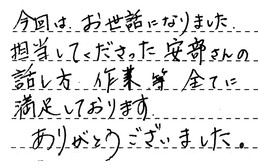 今回は、お世話になりました.
担当してくださった安部さんの
話し方 作業等 全てに
満足しております
ありがとうございました。